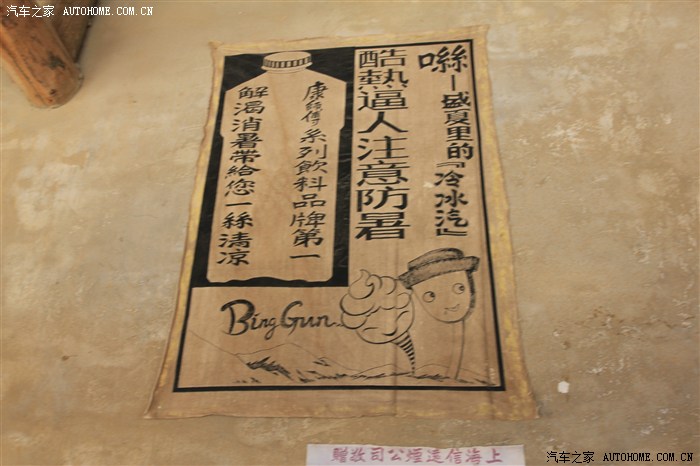 汽车之家 AUTOHOME.COM.CN
噝—盛夏里的『冷冰汽』
酷熱逼人注意防暑
康師傅系列飲料品牌第一
解渴消暑帶給您一絲清凉
Bing Gun
上海信煙公司敬贈
汽车之家 AUTOHOME.COM.CN